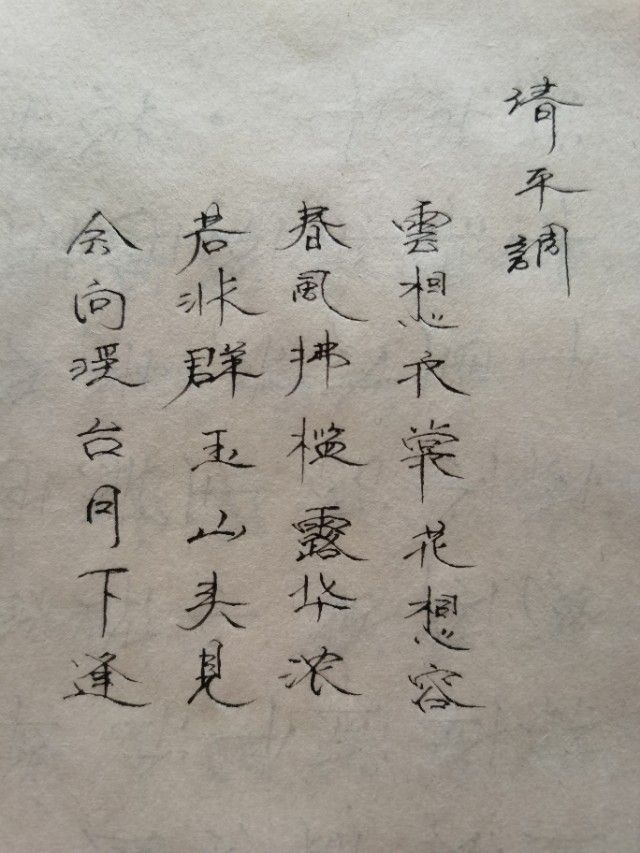 清平調
雲想衣裳花想容
春風拂槛露华浓
若非群玉山头見
会向瑶台月下逢